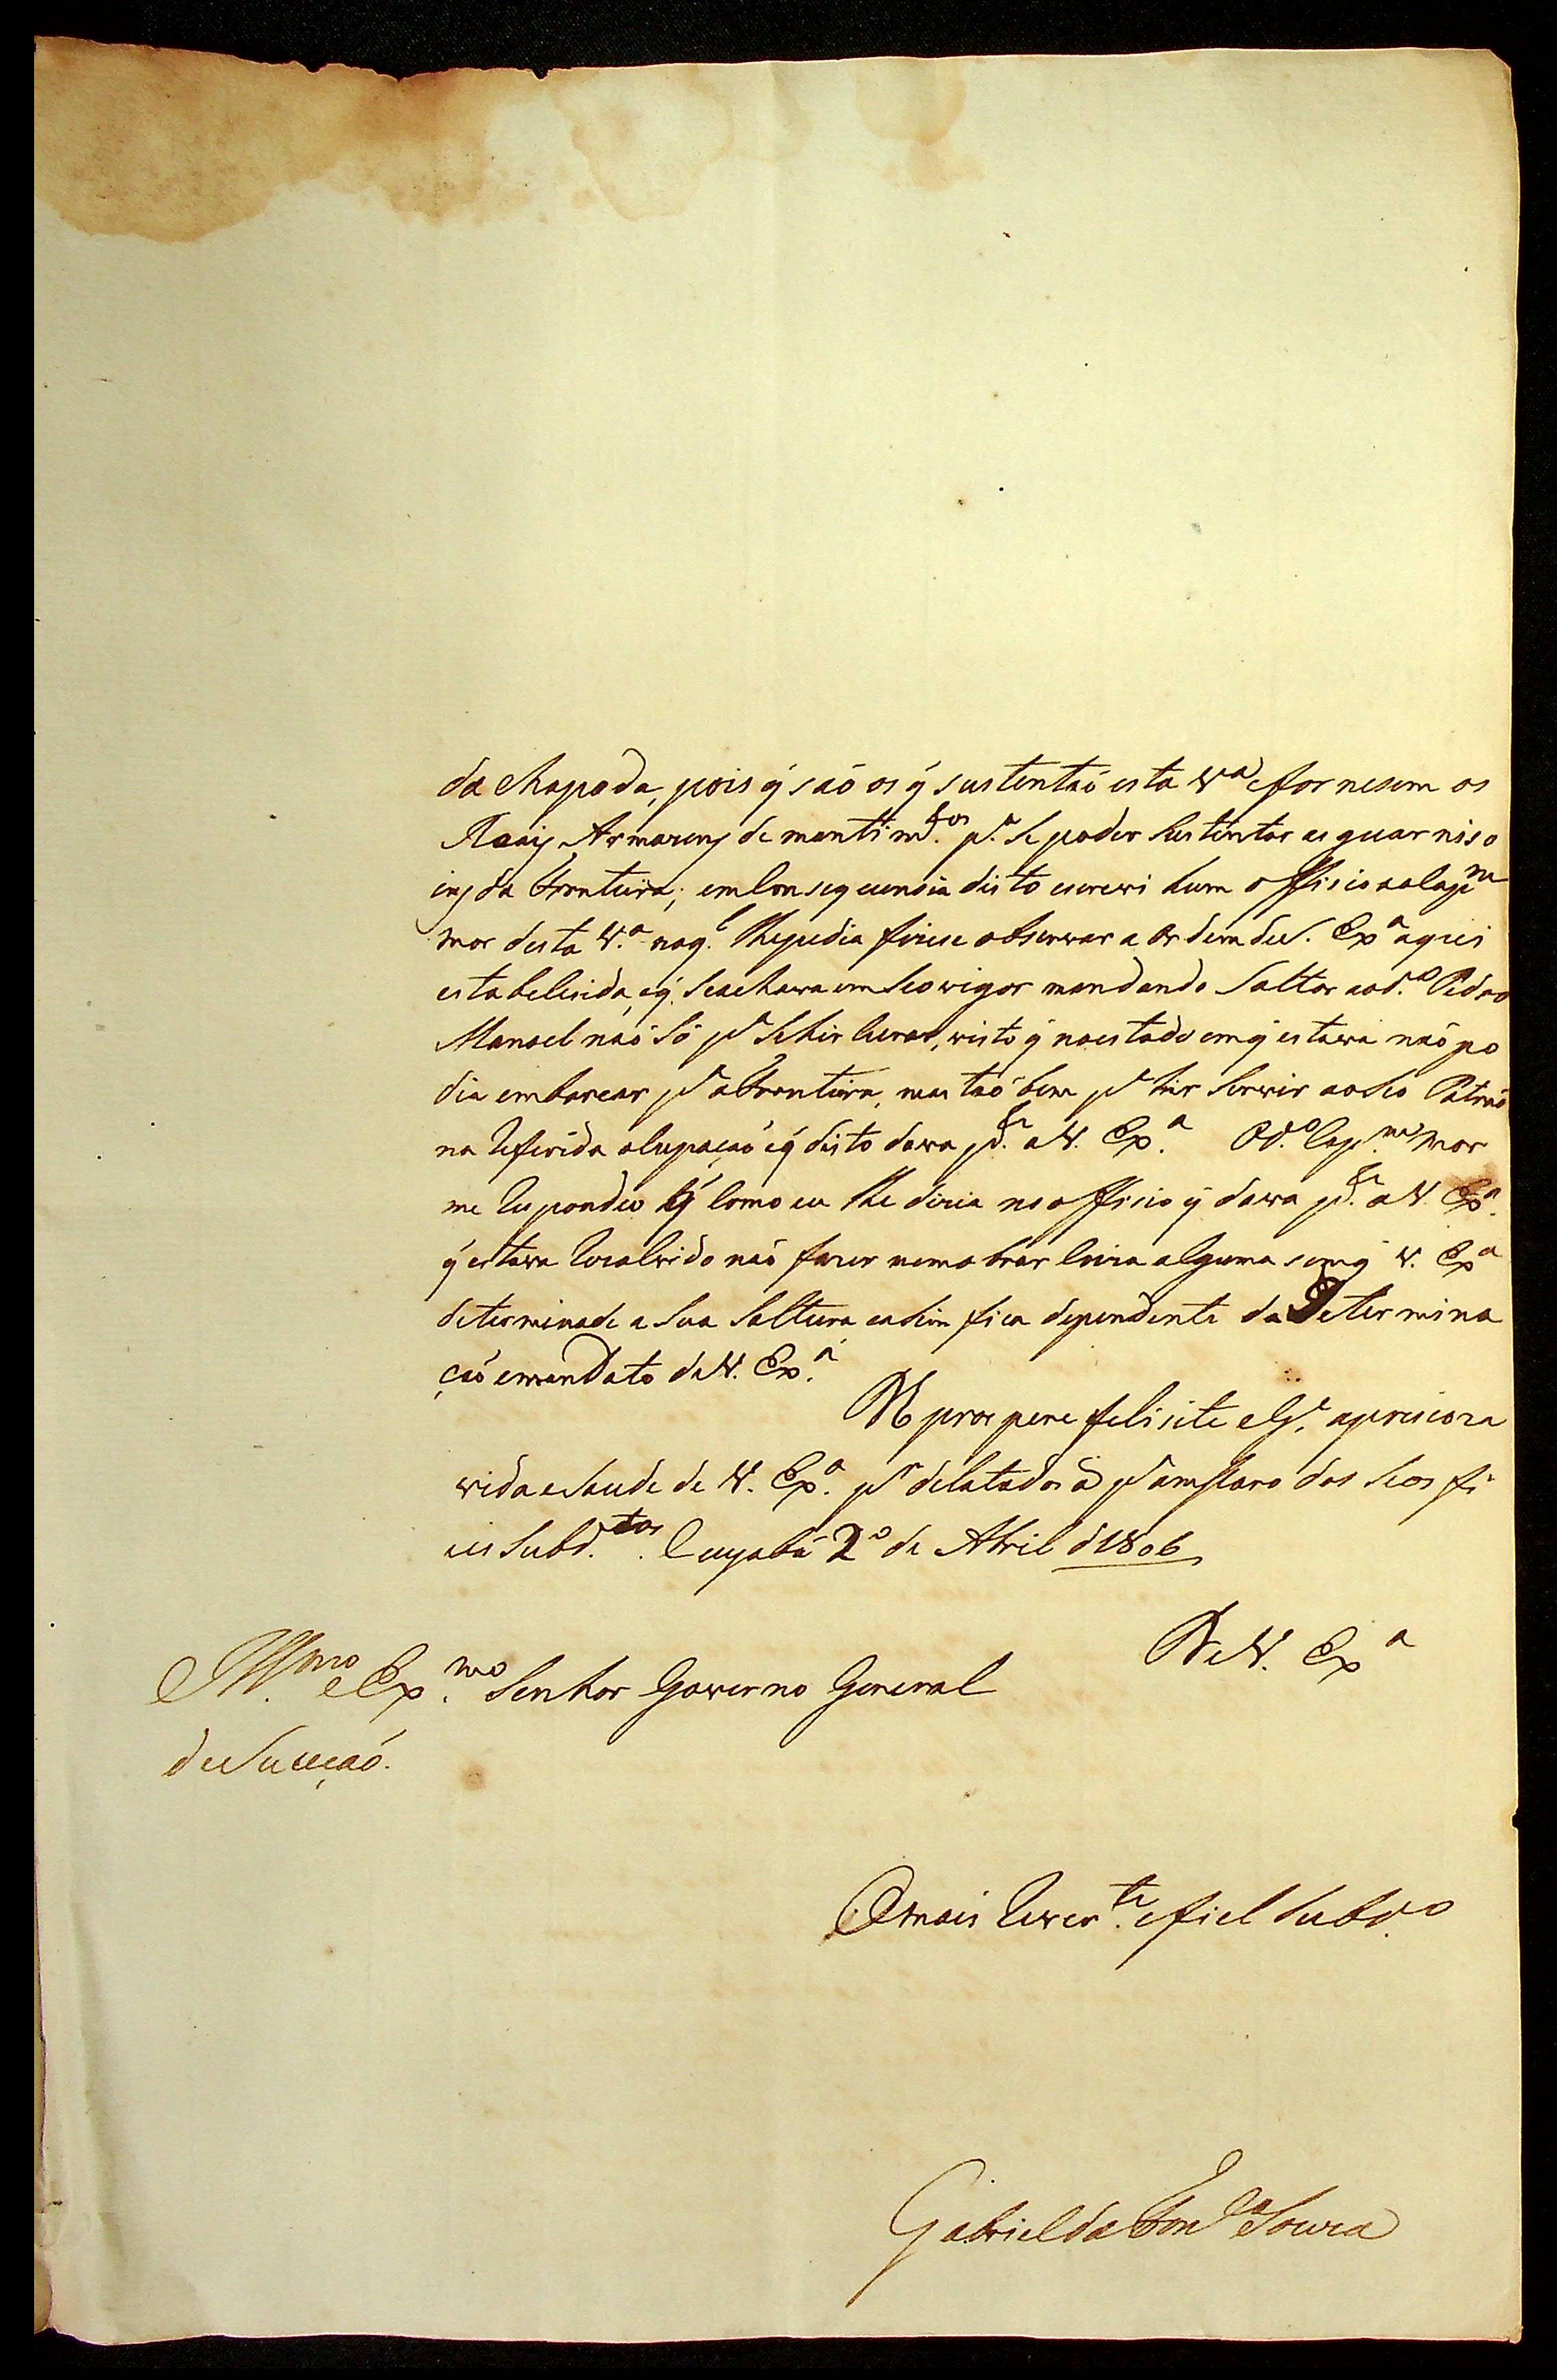 da Chapada, pois q̃ são os q̃ sustentaõ esta V.ª e fornesem os
Reaiz Armazenz de mantim.tos p.ª se poder sustentar as guarniso
inz da Fronteira; em Conseq uensia disto escrevi hum offisio ao Cap.m
mor desta V.ª no q.l lhe pedia fizese observar a Ordem de V. Ex.ª aqui
estabelisida, e q̃ se achava em seo vigor mandando Soltar ao d.º Pedro
Manoel naõ Só p.ª Se hir Curar, visto q̃ no estado em q̃ estava naõ po
dia embarcar p.ª a Fronteira, mas taõ bem p.ª hir Servir ao Seo Patraõ
na Referida oCupaçaõ e q̃ disto dava p.te a V. Ex.ª O d.º Cap.m mor
me Respondeo q̃ Como eu lhe dizia no offisio q̃ dava p.te a V. Ex.ª
q̃ estava Rezolvido naõ fazer nem obrar Coiza alguma sem q̃ V. Ex.ª
determinase a Sua Soltura e asim fica dependente da Determina
çaõ e mandato de V. Ex.ª
D.s prospere felisite e G.e a presioza
vida e Saude de V. Ex.ª p.r delatados a.s p.ª amparo dos Seos fi
eis Subd.tos. Cuyabá 2º de Abril d 1806
De V. Ex.ª
Ill.mo e Ex.mo Senhor Governo General
de Suceçaõ.
O mais Rever.te e fiel Subd.º
Gabriel da Fon.ca e Souza